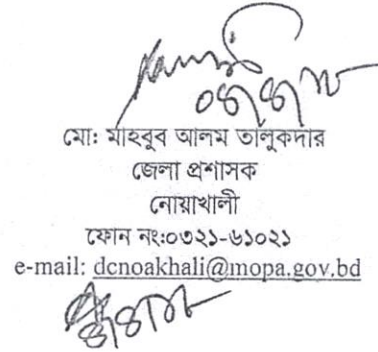 মো: মাহবুব আলম তালুকদার
জেলা প্রশাসক
নোয়াখালী
ফোন নং:০৩২১-৬১০২১
e-mail: dcnoakhali@mopa.gov.bd